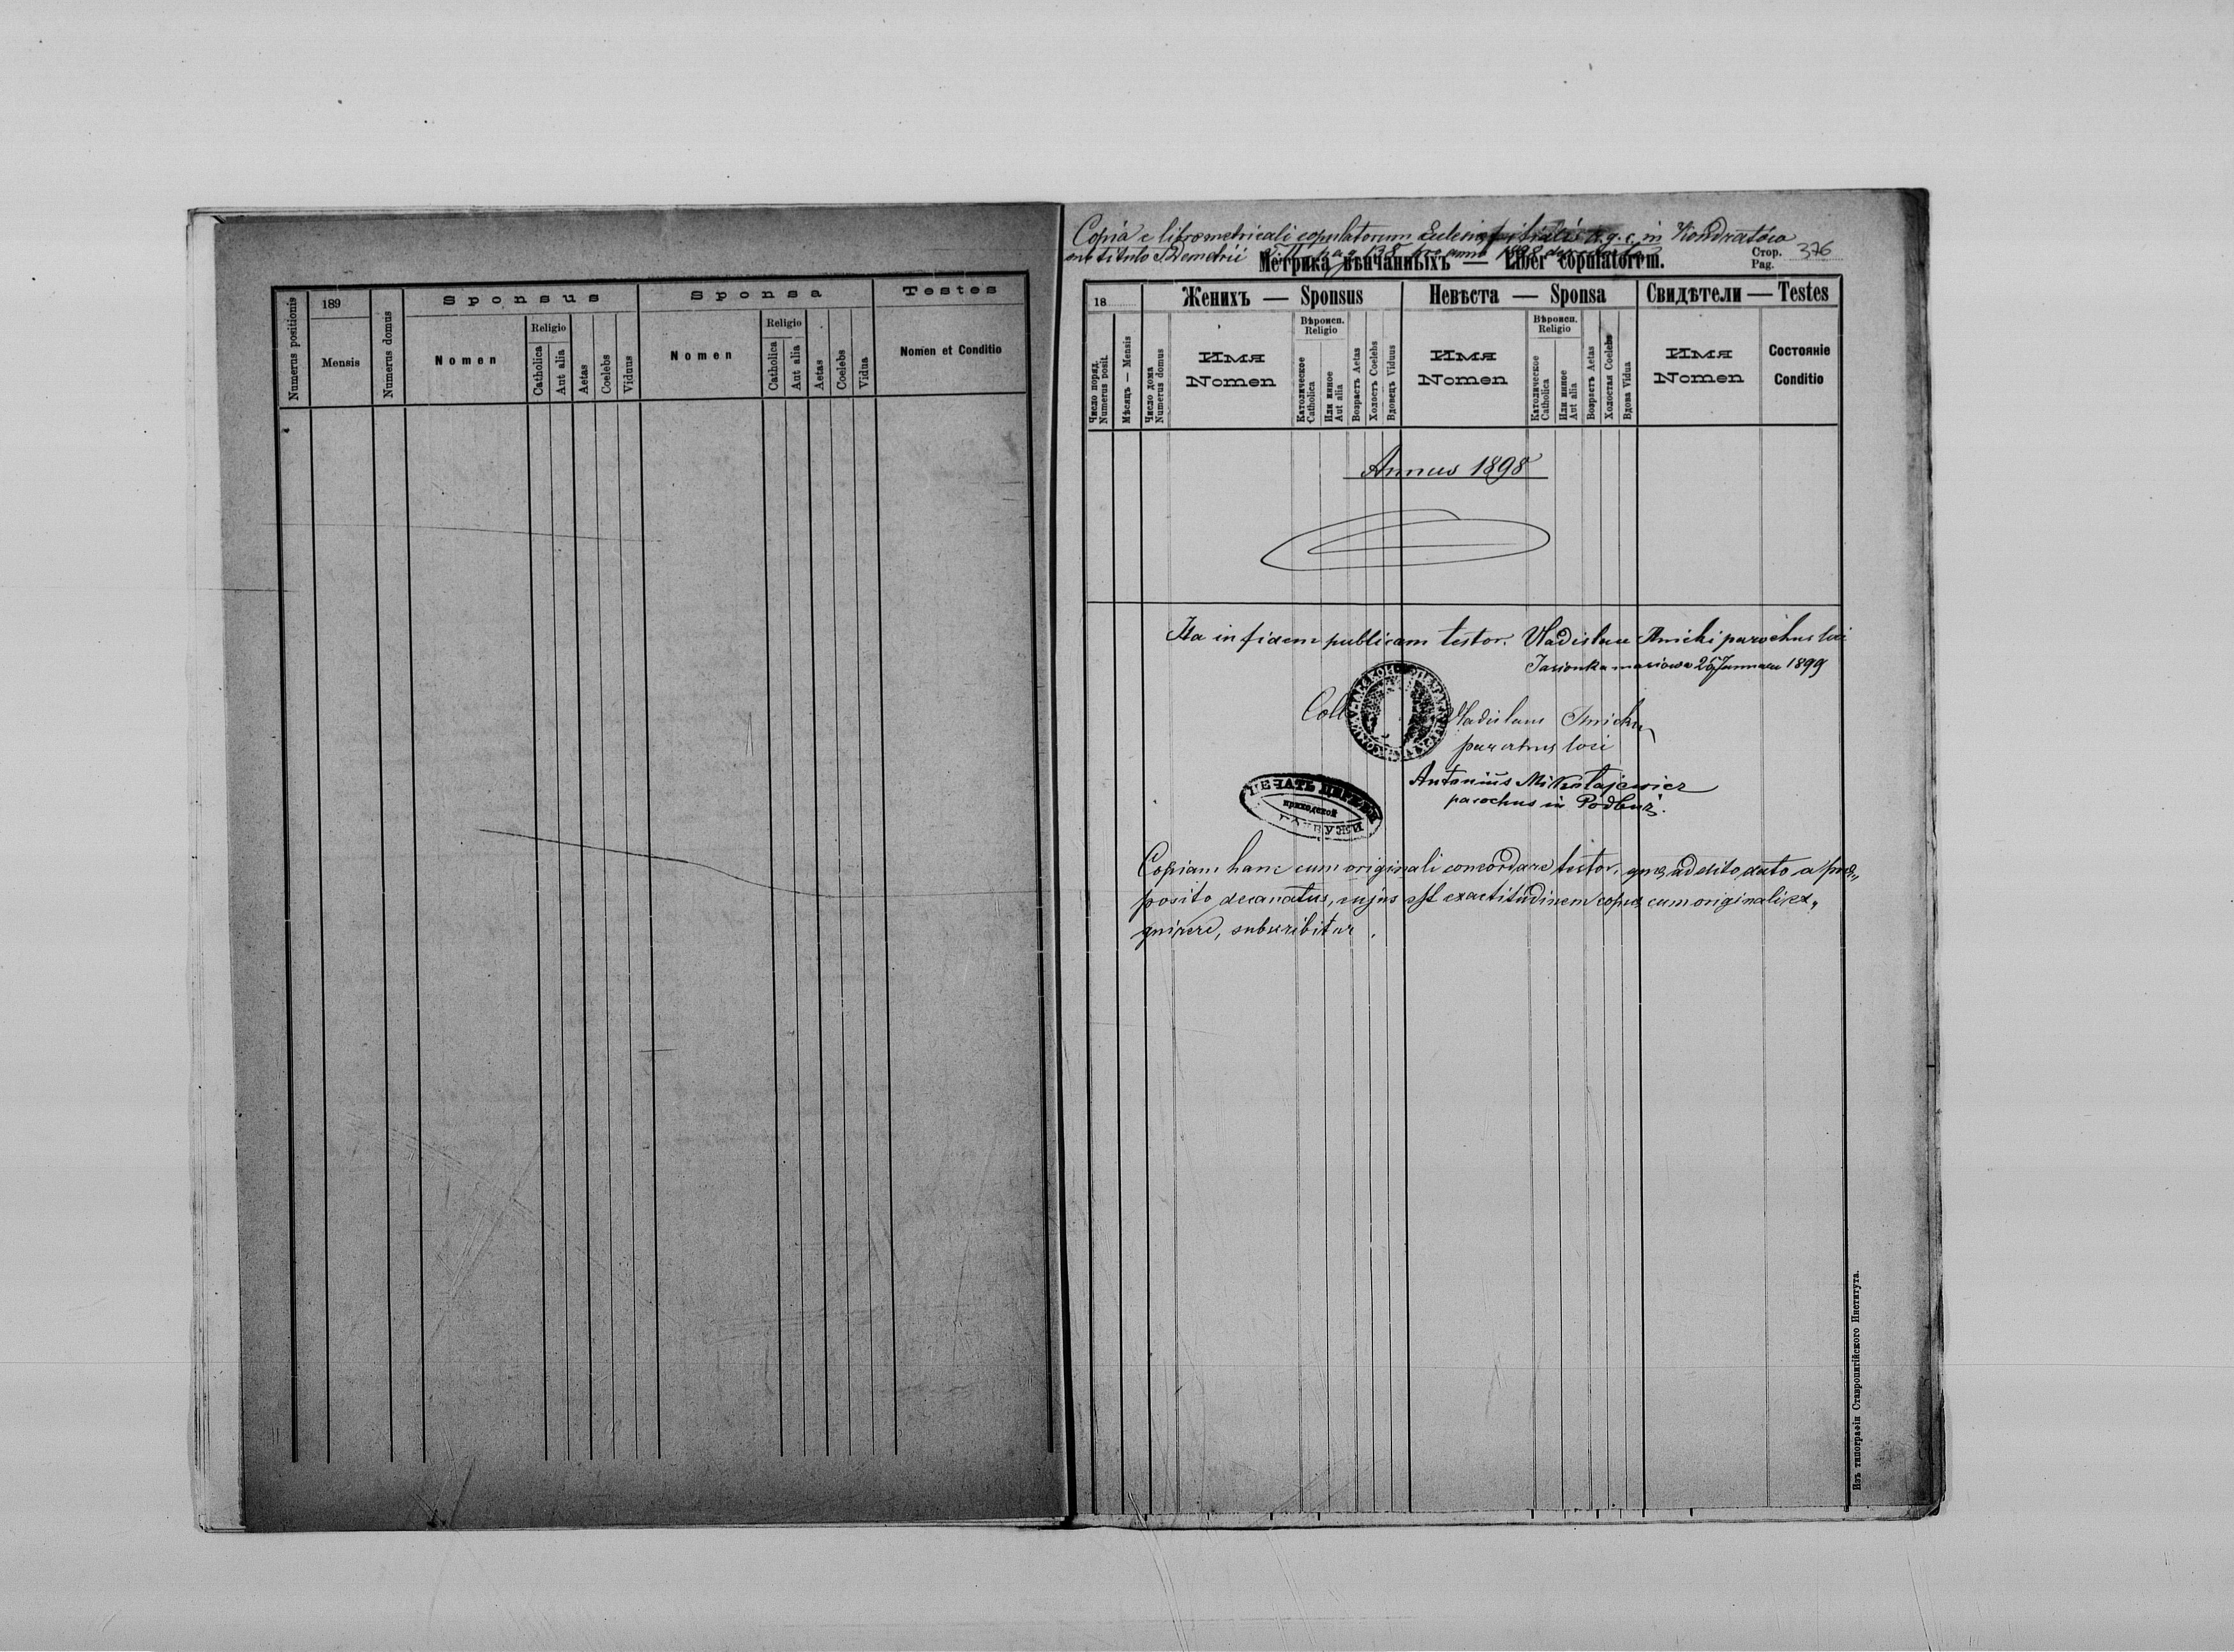 Numerus positionis
189
Mensis
Numerus domus
Sponsus
Nomen
Religio
Catholica
Aut alia
Aetas
Coelebs
Viduus
Sponsa
Nomen
Religio
Catholica
Aut alia
Aetas
Coelebs
Vidua
Testes
Nomen et Conditio
Copia e libro metricali copulatorum Eclesiæ filialis r. g. c. in Kondratów
sub titulo S. Demetrii pro anno 1898
Метрика вѣнчанныхъ — Liber copulatorum.
Стор.
Pag.
376
18
Число поряд.
Numerus posit.
Мѣсяцъ — Mensis
Число дома
Numerus domus
Женихъ — Sponsus
Имя
Nomen
Вѣроисп.
Religio
Католическое
Catholica
Или иное
Aut alia
Возрастъ Aetas
Холостъ Coelebs
Вдовецъ Viduus
Невѣста — Sponsa
Имя
Nomen
Вѣроисп.
Religio
Католическое
Catholica
Или иное
Aut alia
Возрастъ Aetas
Холостая Coelebs
Вдова Vidua
Свидѣтели — Testes
Имя
Nomen
Состояніе
Conditio
Annus 1898
Ita in fidem publicam testor. Vladislaus parochus loci
Jasionka masiowa 25 Januarii 1899
Coll
Vladislaus
parochus loci
Antonius Mikołajewicz
parochus in Podbuż.
ПЕЧАТЬ ЦЕРКВИ
приходской
Copiam hanc cum originali concordare testor, quæ addito dato a præ„
posito decanatus, cujus est exactitudinem copiæ cum originali ex„
quirere, subscribitur.
Изъ типографіи Ставропигійского Института.